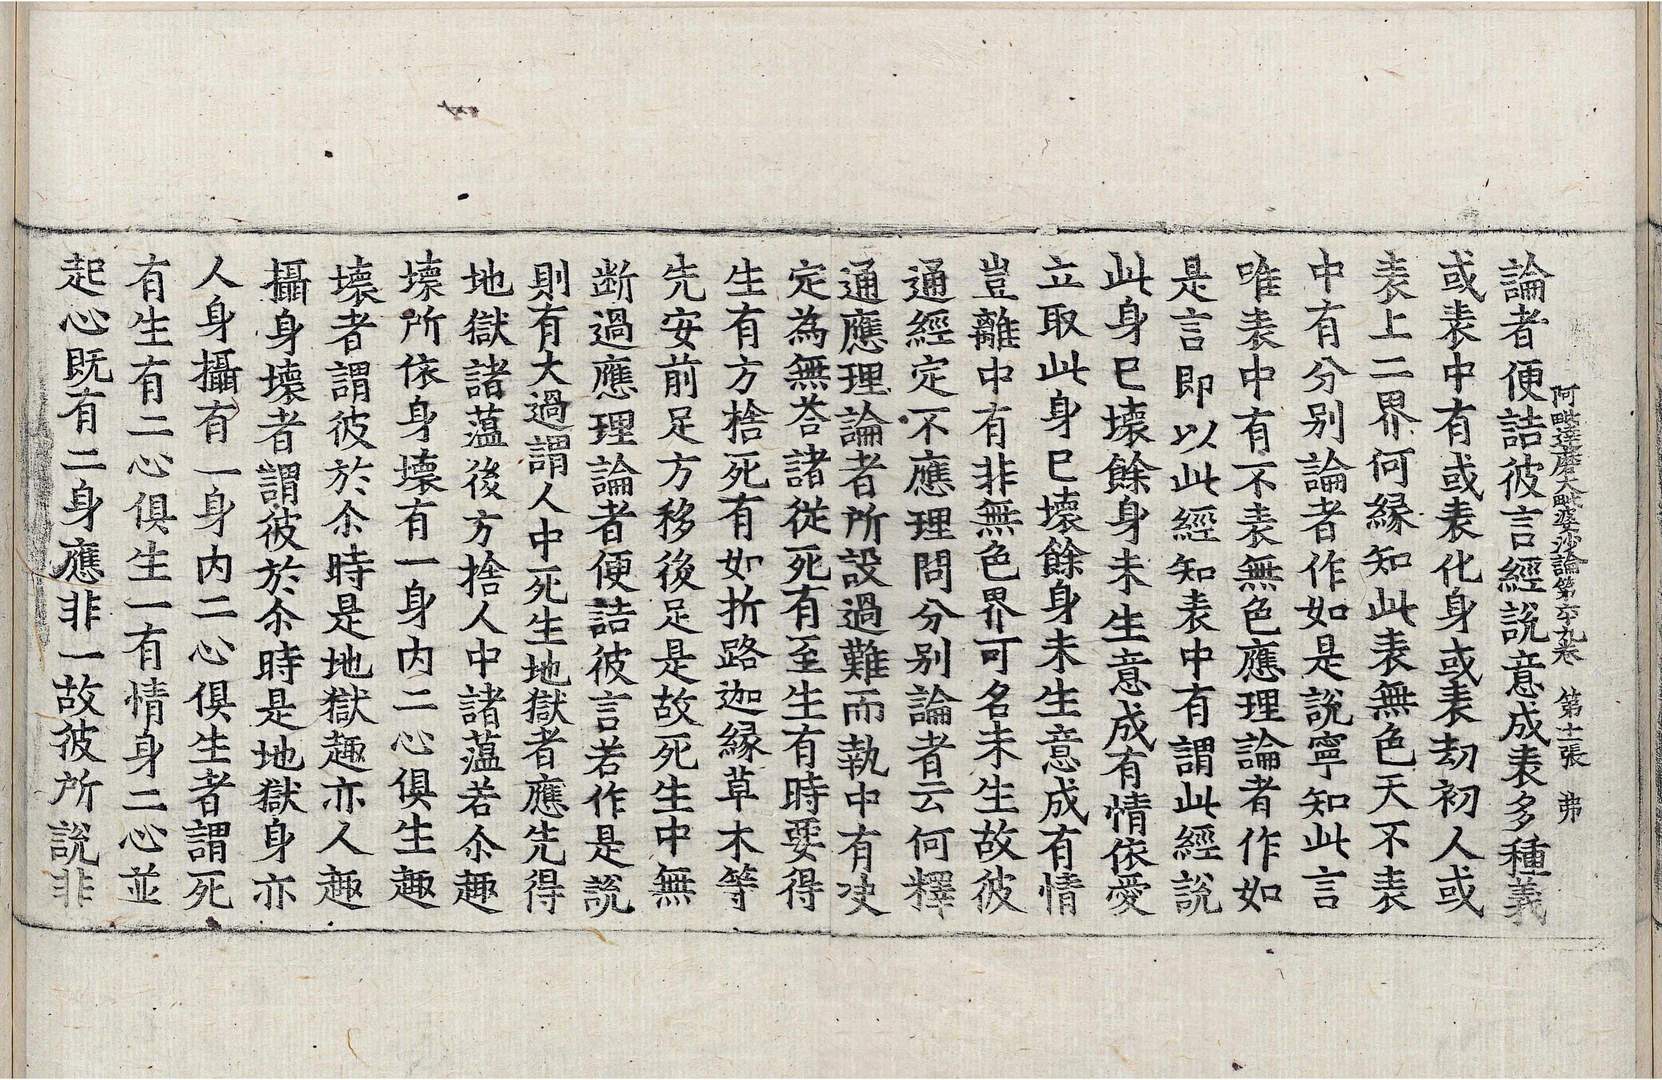 阿毗達磨大毗婆沙論第六十九卷 第十一張 弗
論者便詰彼言經說意成表多種義
或表中有或表化身或表刼初人或
表上二界何緣知此表無色天不表
中有分别論者作如是說寧知此言
唯表中有不表無色應理論者作如
是言即以此經知表中有謂此經說
此身已壞餘身未生意成有情依愛
立取此身已壞餘身未生意成有情
豈離中有非無色界可名未生故彼
通經定不應理問分别論者云何釋
通應理論者所設過難而執中有决
定為無荅諸從死有至生有時要得
生有方捨死有如折路迦緣草木等
先安前足方移後足是故死生中無
断過應理論者便詰彼言若作是說
則有大過謂人中死生地獄者應先得
地獄諸蘊後方捨人中諸蘊若尒趣
壞所依身壞有一身内二心俱生趣
壞者謂彼於尒時是地獄趣亦人趣
攝身壞者謂彼於尒時是地獄身亦
人身攝有一身内二心俱生者謂死
有生有二心俱生一有情身二心並
起心既有二身應非一故彼所說非